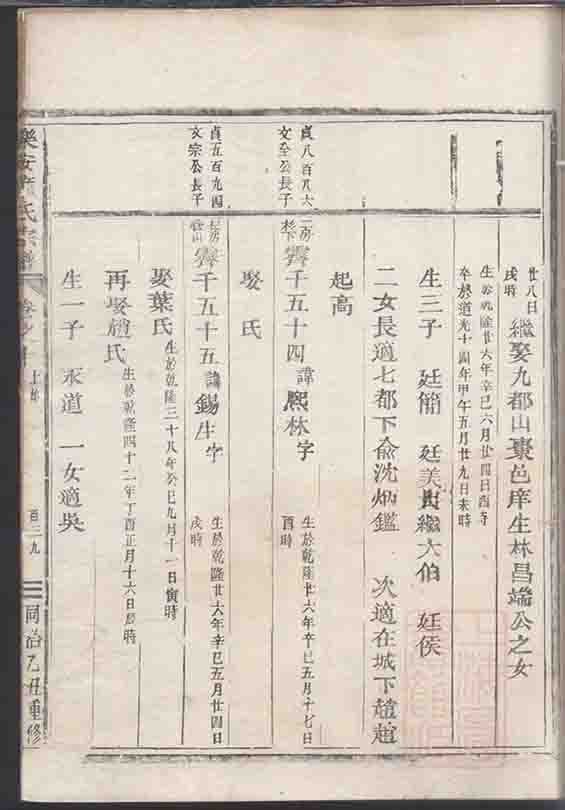 廿八日戌時
繼娶九都山棗邑庠生林昌端公之女
生於乾隆廿六年辛巳六月廿四日酉時
卒於道光十四年甲午五月廿九日未時
生三子 廷簡 廷美出繼大伯 廷侯
二女長適七都下俞沈炳鑑 次適在城下趙
起高
貞八百八六
文全公長子
二房
霽千五十四諱熙林字
生於乾隆廿六年辛巳五月十七日酉時
娶 氏
貞五百九四
文宗公長子
霽千五十五諱錫生字
生於乾隆廿六年辛巳五月廿四日戌時
娶葉氏
生於乾隆三十八年癸巳九月十一日寅時
再娶趙氏
生於乾隆四十二年丁酉正月十六日辰時
生一子 永道 一女適吳
樂安 氏宗譜
百三九
同治乙丑重修